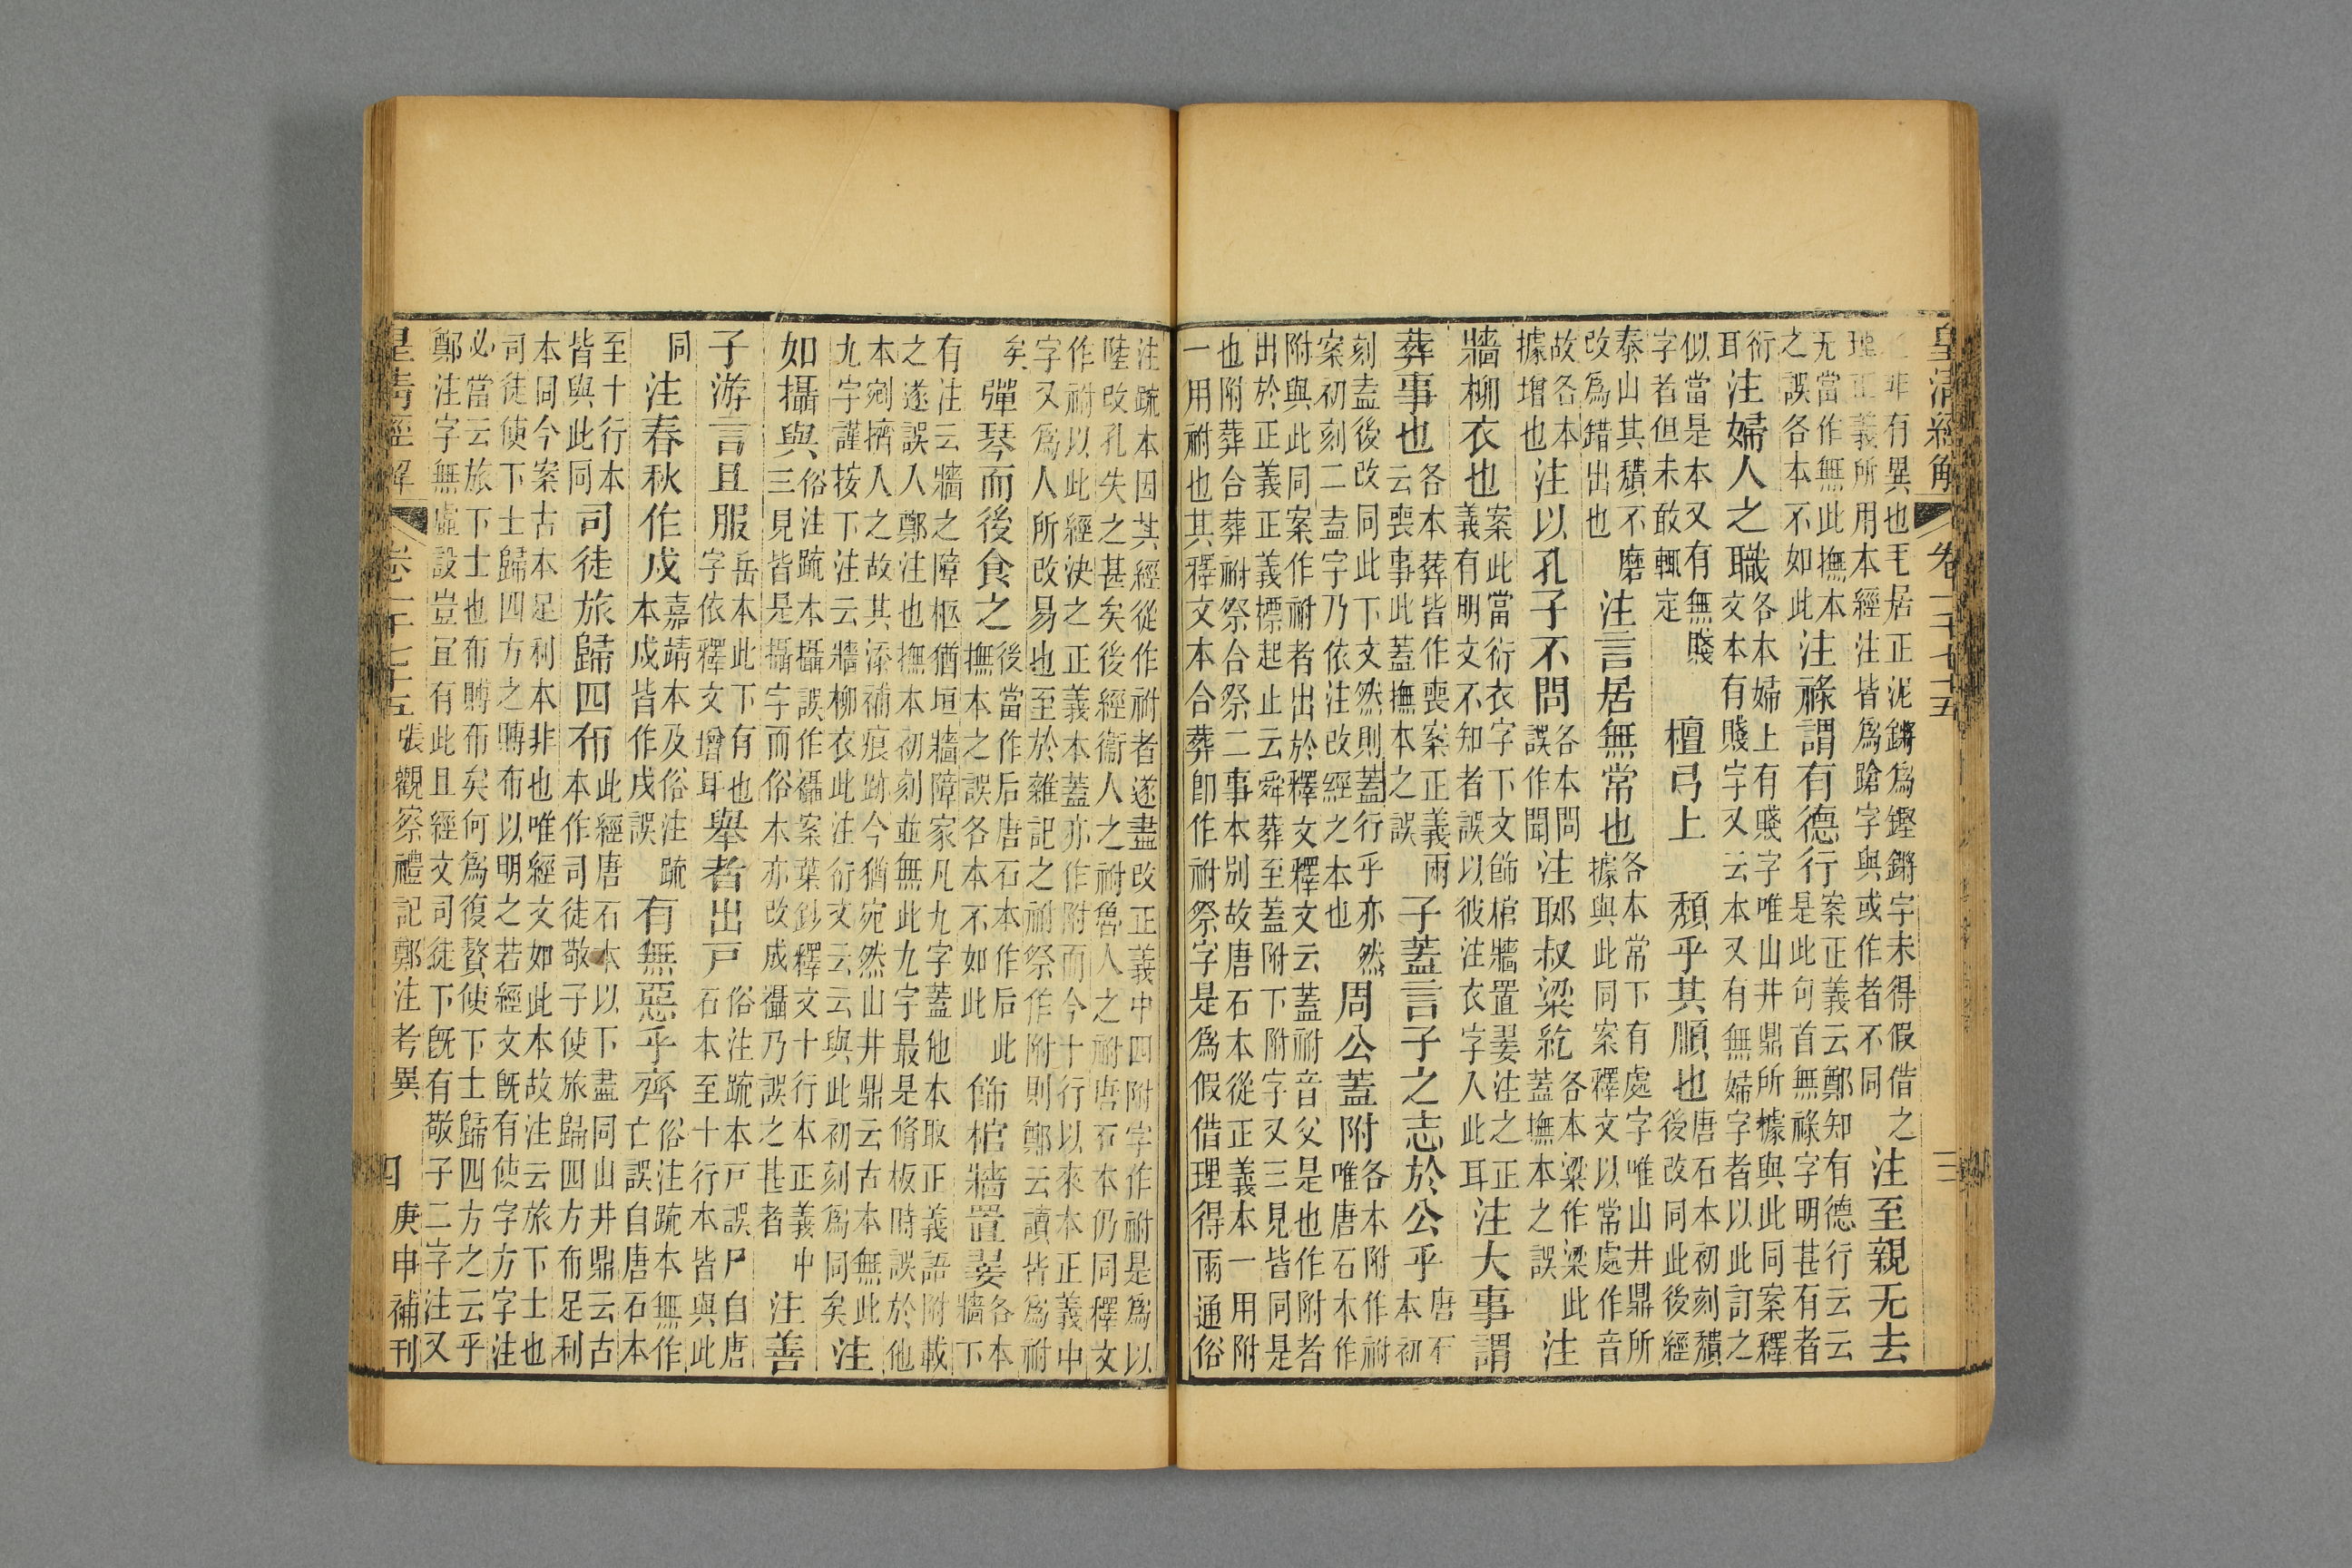 皇清經解 卷一千七十五 三
非有異也毛居正泥鏘爲鏗鏘字未得假借之
理正義所用本經注皆爲蹌字與或作者不同
注至親无去
无當作無此撫本
之誤各本不如此
注祿謂有德行
案正義云鄭知有德行云云
是此句首無祿字明甚有者
衍
耳
注婦人之職
各本婦上有賤字唯山井鼎所據與此同案釋
文本有賤字又云本又有無婦字者以此訂之
似當是本又有無賤
字者但未敢輒定
檀弓上
頽乎其順也
唐石本初刻穨
後改同此後經
泰山其穨不磨
改爲錯出也
注言居無常也
各本常下有處字唯山井鼎所
據與此同案釋文以常處作音
故各本
據增也
注以孔子不問
各本問
誤作聞
注郰叔梁紇
各本粱作梁此
蓋撫本之誤
注
牆柳衣也
案此當衍衣字下文飾棺牆置翣注之正
義有明文不知者誤以彼注衣字入此耳
注大事謂
葬事也
各本葬皆作喪案正義兩
云喪事此蓋撫本之誤
子蓋言子之志於公乎
唐石
本初
刻盍後改同此下文然則蓋行乎亦然
案初刻二盍字乃依注改經之本也
周公蓋附
各本附作祔
唯唐石本作
附與此同案作祔者出於釋文釋文云蓋祔音父是也作附者
出於正義正義標起止云舜葬至蓋附下附字又三見皆同是
也附葬合葬祔祭合祭二事本別故唐石本從正義本一用附
一用祔也其釋文本合葬卽作祔祭字是爲假借理得兩通俗
注疏本因其經從作祔者遂盡改正義中四附字作祔是爲以
陸改孔失之甚矣後經衞人之祔魯人之祔唐石本仍同釋文
作祔以此經決之正義本蓋亦作附而今十行以來本正義中
字又爲人所改易也至於雜記之祔祭作附則鄭云讀皆爲祔
矣
彈琴而後食之
後當作后唐石本作后此
撫本之誤各本不如此
飾棺牆置翣
各本
牆下
有注云牆之障柩猶垣牆障家凡九字蓋他本取正義語附載
之遂誤入鄭注也撫本初刻並無此九字最是脩板時誤於他
本剜擠入之故其添補痕跡今猶宛然山井鼎云古本無此
九字謹按下注云牆柳衣此注衍文云云與此初刻爲同矣
注
如攝與
俗注疏本攝誤作襵案葉鈔釋文十行本正義中
三見皆是攝字而俗本亦改成襵乃誤之甚者
注善
子游言且服
岳本此下有也
字依釋文增耳
舉者出戶
俗注疏本戶誤尸自唐
石本至十行本皆與此
同
注春秋作戍
嘉靖本及俗注疏
本戍皆作戌誤
有無惡乎齊
俗注疏本無作
亡誤自唐石本
至十行本
皆與此同
司徒旅歸四布
此經唐石本以下盡同山井鼎云古
本作司徒敬子使旅歸四方布足利
本同今案古本足利本非也唯經文如此本故注云旅下士也
司徒使下士歸四方之賻布以明之若經文旣有使字方字注
必當云旅下士也布賻布矣何爲復贅使下士歸四方之云乎
鄭注字無虛設豈宜有此且經文司徒下旣有敬子二字注又
皇清經解 卷一千七十五 張觀察禮記鄭注考異 四 庚申補刊